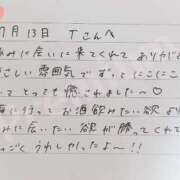 7月13日 Tさんへ
みに会いに来てくれて ありがと
さしい雰囲気で ずっとにこにこ
いて とっても 癒されました〜♡
毎に行って お酒飲みたい欲より
会いたい欲が 勝ってくれて
っごく うれしかったよ〜!!